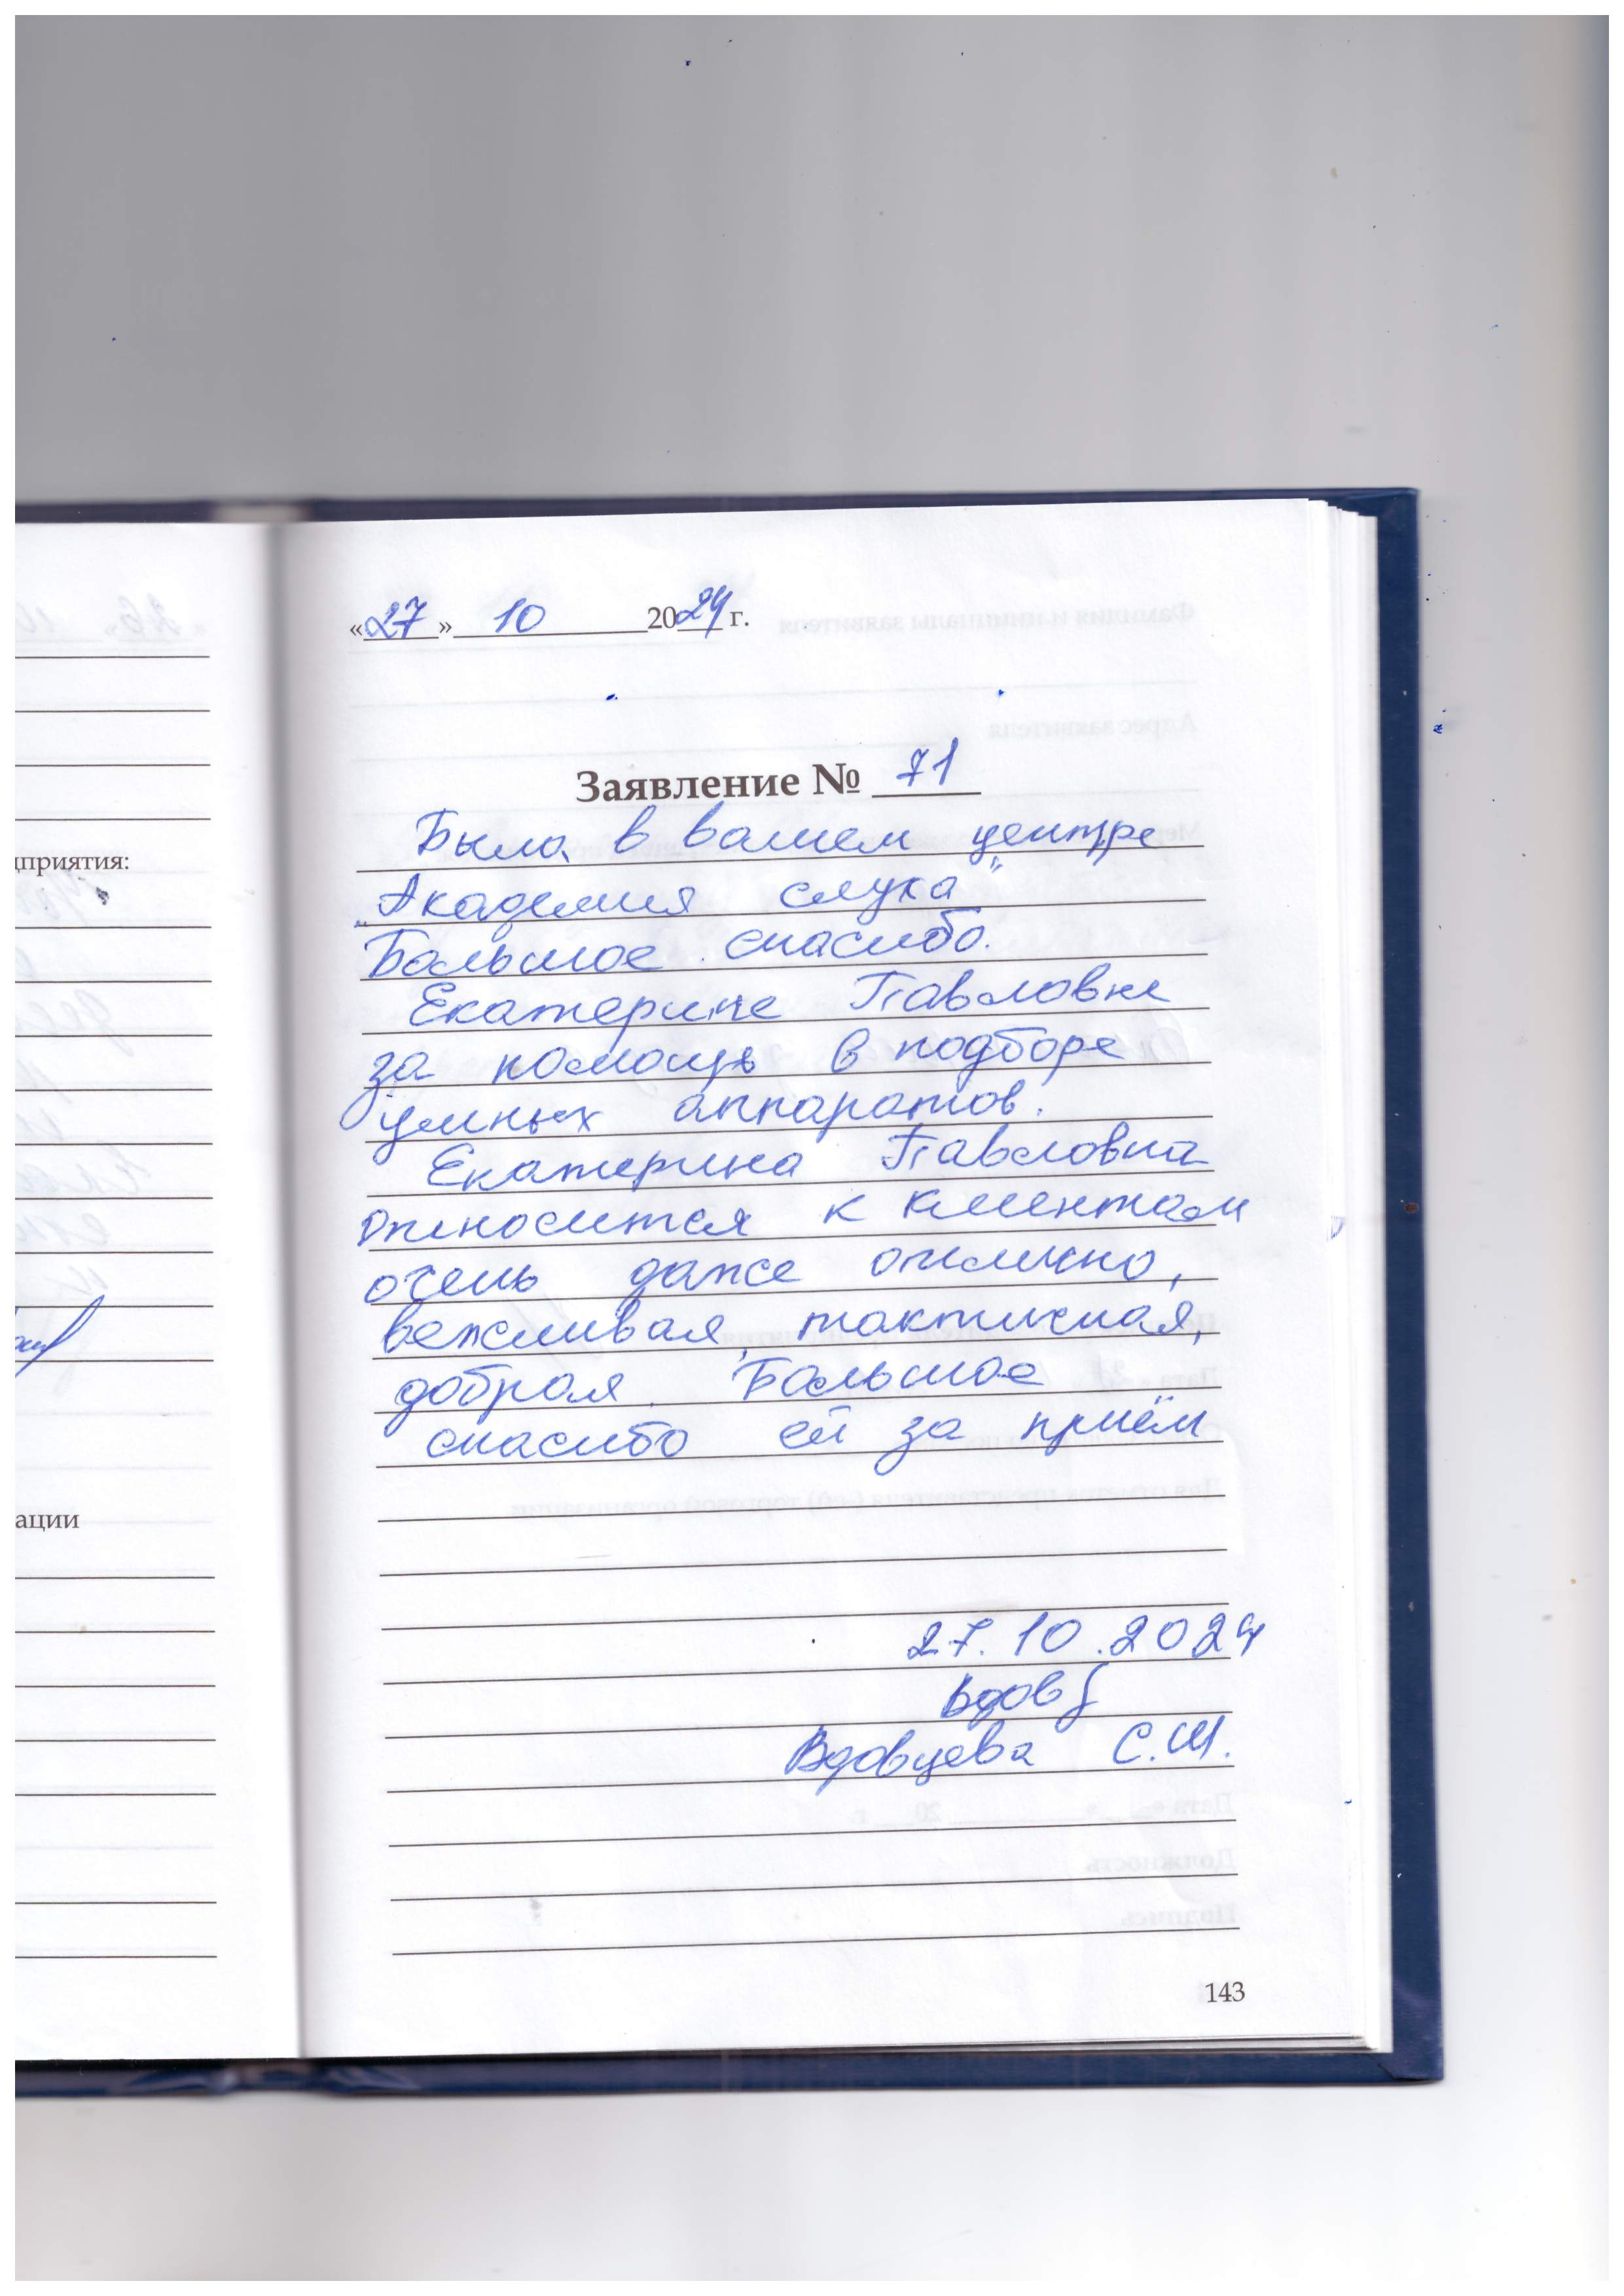 «27» 10 2024 г.
Заявление № 71
Была в вашем центре
„Академия слуха"
Большое спасибо.
Екатерине Павловне
за помощь в подборе
умных аппаратов.
Екатерина Павловна
относится к клиентам
очень даже отлично,
вежливая, тактичная,
добрая. Большое
спасибо ей за приём
27.10.2024
Вдов
Вдовцева С.Ш.
143
дприятия:
ации